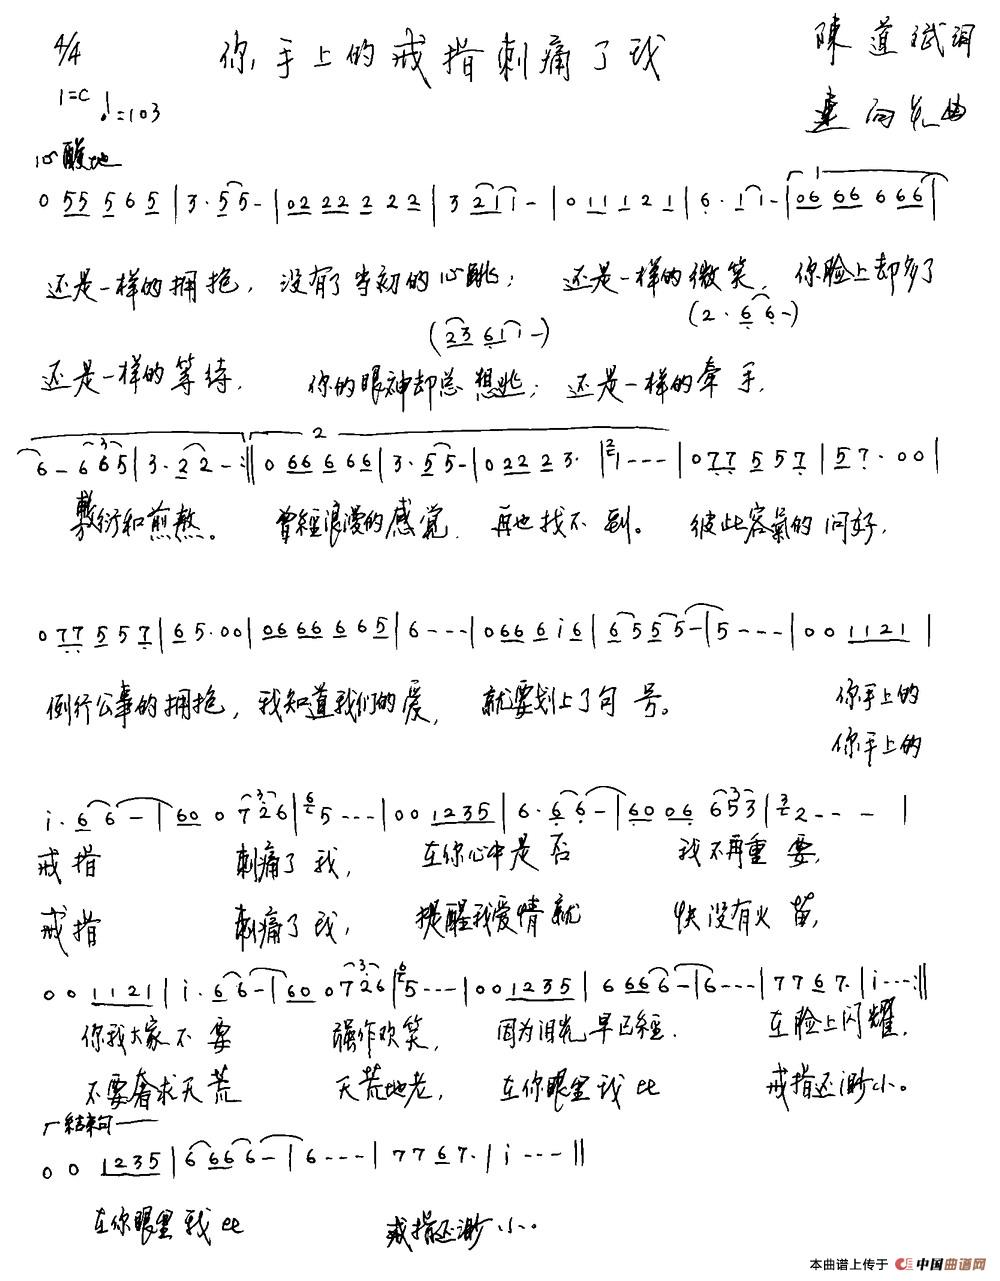 4/4 你手上的戒指刺痛了我 陳道斌词
1=C ♩=103 建向光曲
心酸地
0 55 5 6 5 | 3 · 5 5 - | 02 22 2 22 | 3 21 1 - | 0 11 1 2 1 | 6 · 1 1 - | 06 66 6 66 |
还是一样的拥抱，没有了当初的心跳；还是一样的微笑，你脸上却多了
(23 61 1 -) (2 · 6 6 -)
还是一样的等待，你的眼神却总想逃；还是一样的牵手，
6 - 6 6 5 | 3 · 2 2 - :|| 0 66 6 66 | 3 · 5 5 - | 0 22 2 3 · | 1 - - - | 0 77 5 5 7 | 5 7 · 0 0 |
敷衍和煎熬。曾經浪漫的感觉，再也找不到。彼此客氣的问好，
0 77 5 5 7 | 6 5 · 0 0 | 06 66 6 6 5 | 6 - - - | 0 66 6 i 6 | 6 5 5 5 - | 5 - - - | 0 0 1121 |
例行公事的拥抱，我知道我们的爱，就要划上了句号。你手上的
你手上的
i · 6 6 - | 60 0 7 2 6 | 5 - - - | 0 0 1235 | 6 · 6 6 - | 60 06 6 5 3 | 2 - - - |
戒指 刺痛了我，在你心中是否 我不再重要，
戒指 刺痛了我，提醒我爱情就 快没有火苗，
0 0 1121 | i · 6 6 - | 60 0 7 2 6 | 5 - - - | 0 0 1235 | 6 666 - | 6 - - - | 7 7 6 7 · | i - - - :||
你我大家不要 强作欢笑，因为泪光早已經，在脸上闪耀，
不要奢求天荒 天荒地老，在你眼里我比 戒指还渺小。
结束句
0 0 1235 | 6 666 - | 6 - - - | 7 7 6 7 · | i - - - ||
在你眼里我比 戒指还渺小。
本曲谱上传于 中国曲谱网